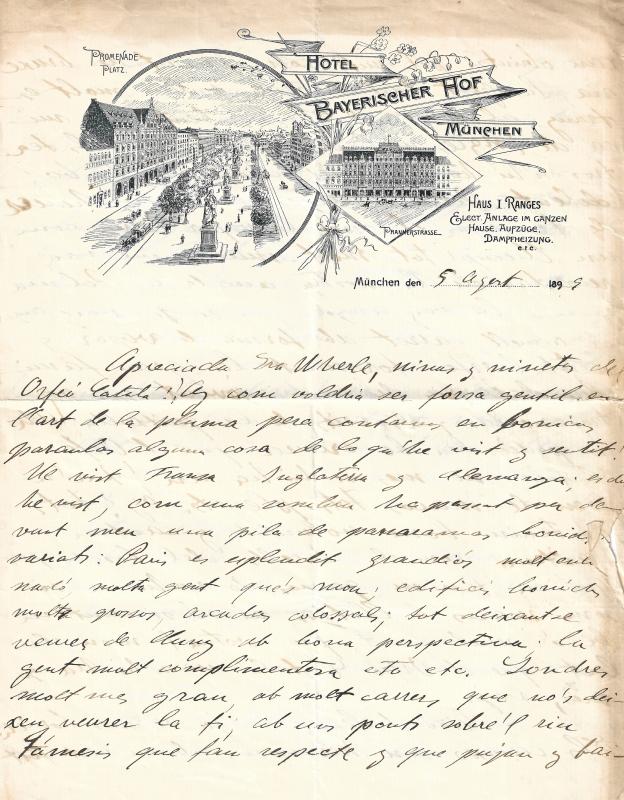 PROMENADE
PLATZ.
HOTEL
BAYERISCHER HOF
MÜNCHEN
HAUS I RANGES
ELECT. ANLAGE IM GANZEN
HAUSE, AUFZÜGE,
DAMPFHEIZUNG.
etc.
PRANNERSTRASSE
München den 5 Agost 1899
Apreciada Sra Wherle, ninas y ninetes del
Orfeó Catalá! Ay com voldria ser forsa gentil en
l'art de la pluma pera contarvos en bonicas
paraulas alguna cosa de lo qu'he vist y sentit!
He vist Fransa Inglaterra y Alemanya; es dir
he vist, com una sombra ha passat pel da
vant meu una pila de panoramas bonichs
variats: Paris es esplendit grandiós molt
molta gent qu'es mou, edificis bonichs
molt grossos, arcadas colossals; tot deixantse
veurer de lluny ab bona perspectiva; la
gent molt complimentosa etc etc. Londres
molt mes gran, ab molt carrers, que no's dei-
xen veurer la fi, ab uns ponts sobre'l riu
Támesis que fan respecte y que pujan y bai-